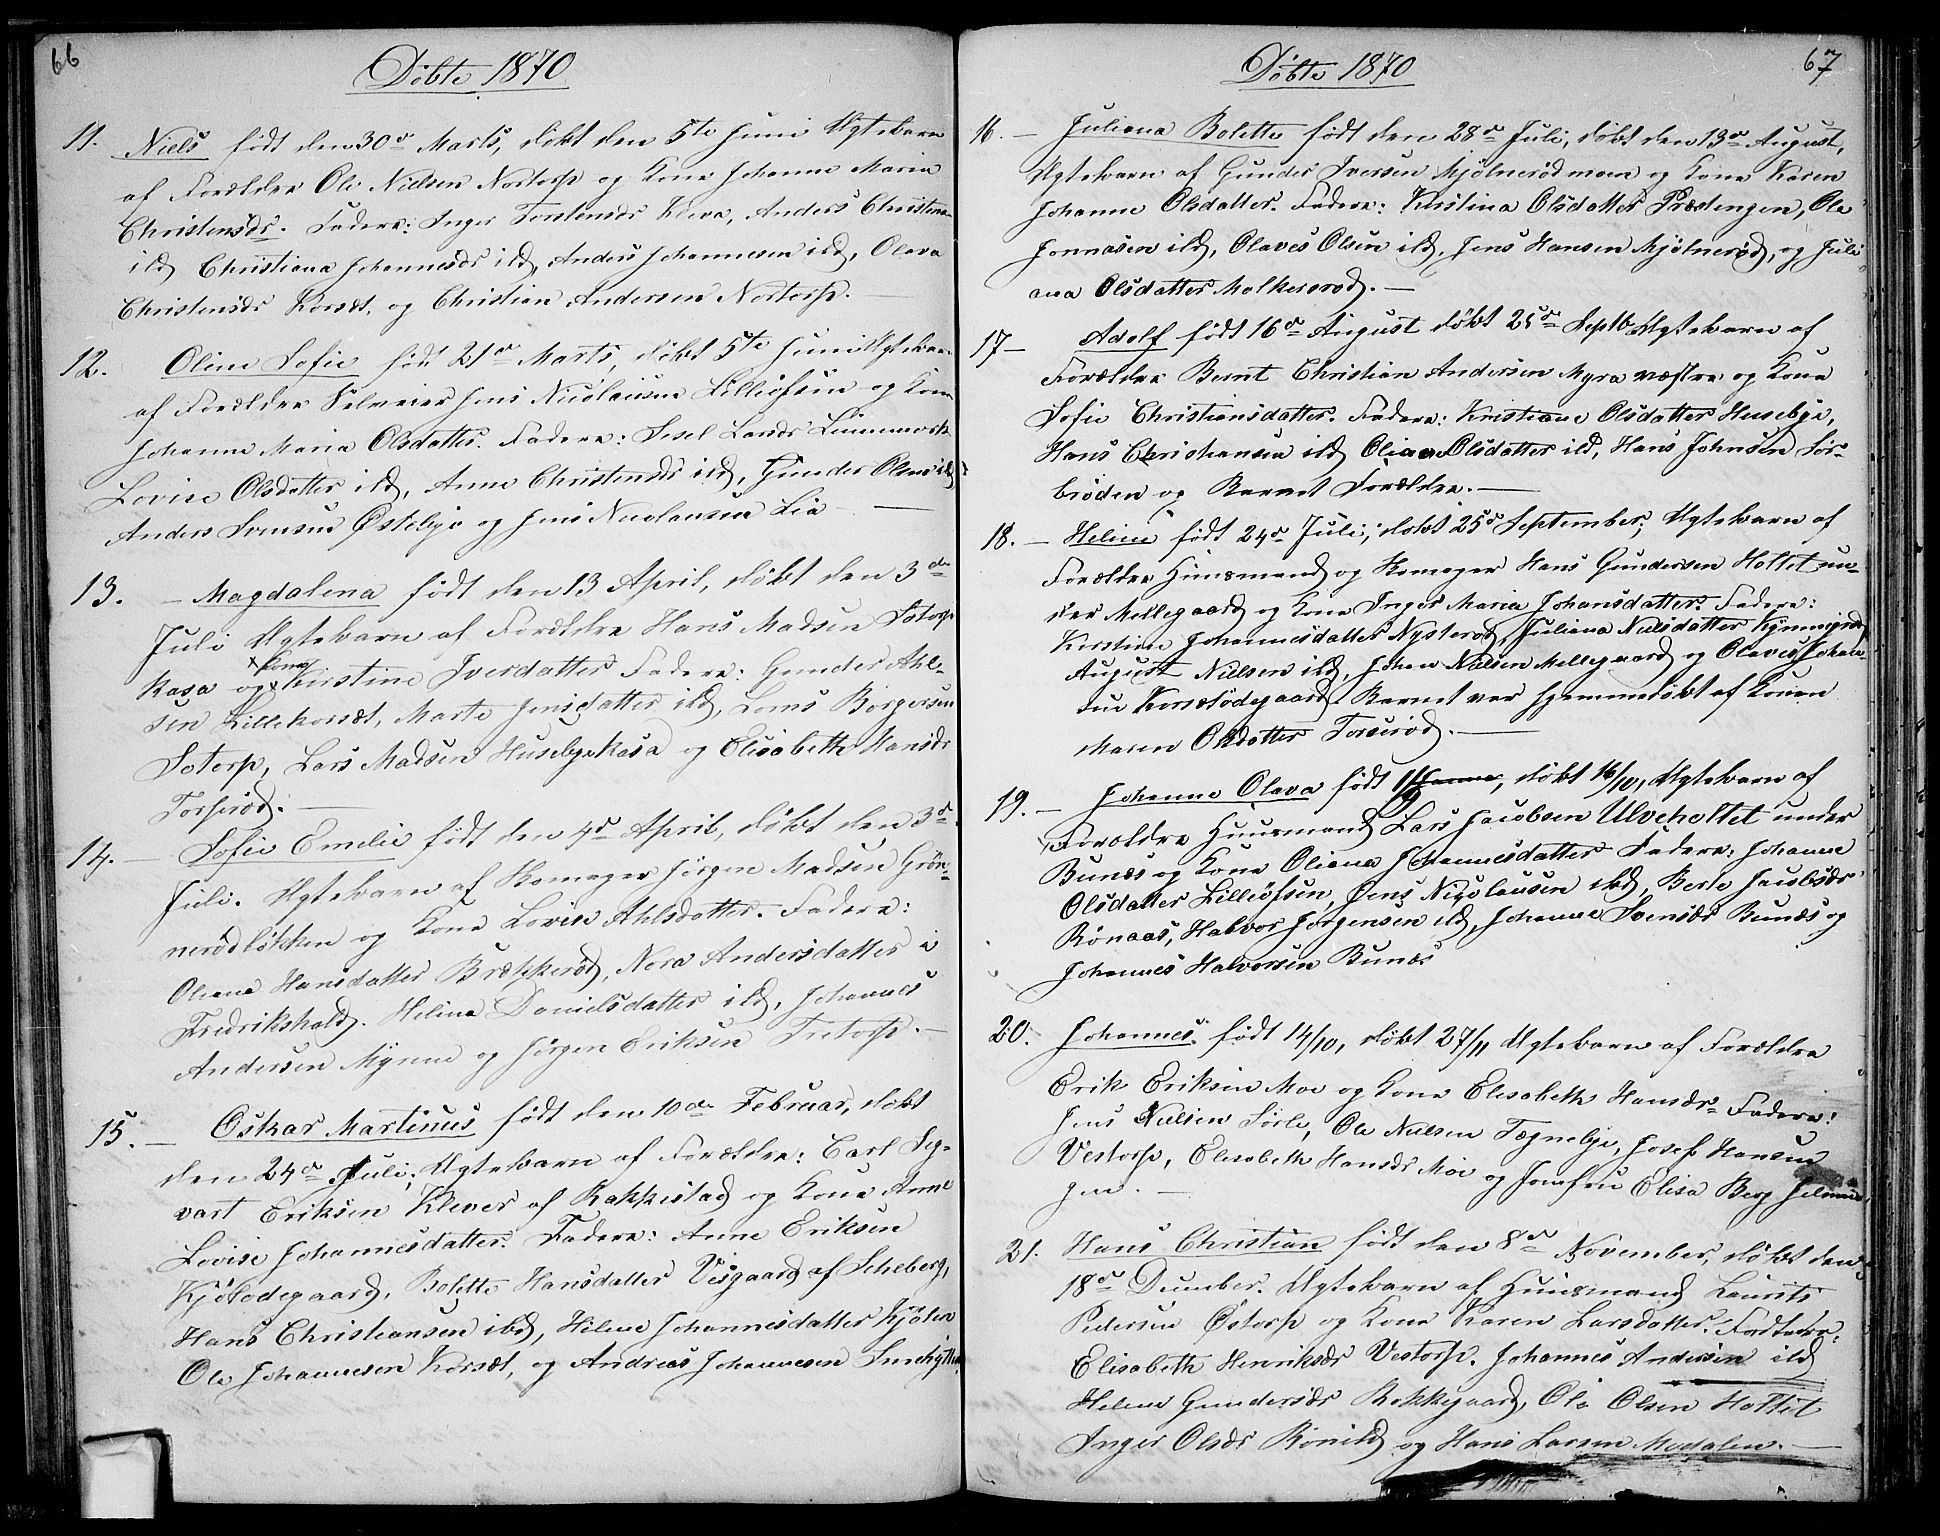 66
Döbte 1870
11. Niels født den 30te Marts, døbt den 5te Juni Ægtebarn
af Forældre Ole Nielsen Nortorp og Kone Johanne Maria
Christensdr. Faddere: Inger Torstensdr Kleva, Anders Christensen
ibd, Christiana Johannesdr ibd, Anders Johannesen ibd, Olava
Christensdr Korsæt, og Christian Andersen Nortorp. —
12. Oline Sofie født 21de Marts, døbt 5te Juni Ægtebarn
af Forældre Selveier Jens Nicolaisen Lilleöfsin og Kone
Johanne Maria Olsdatter. Faddere: Sesel Larsdr
Lovise Olsdatter ibd, Anne Christensdr ibd, Gunder Olsen ibd
Anders Svensen Östebye og Jens Nicolausen Lia —
13. — Magdalena født den 13 April, døbt den 3de
Juli Ægtebarn af Forældre Hans Madsen Sotorp
Kasa og Kone Kirstine Iverdatter Faddere: Gunder Ahl-
sen Lillekorsæt, Marte Jensdatter ibd, Borgersen
Sotorp, Lars Madsen Husebyekasa og Elisabeth Hansdr
Torperöd. —
14. — Sofie Emilie født den 4de April, døbt den 3de
Juli. Ægtebarn af Skomager Jörgen Madsen Grön-
nerödløkken og Kone Lovise Ahlsdatter. Faddere:
Oliana Hansdatter Brækkeröd, Nora Andersdatter i
Fredrikshald. Helina Danielsdatter ibd, Johannes
Andersen Myrene og Jörgen Eriksen Tretorp. —
15. — Oskar Martinus født den 10de Februar, døbt
den 24de Juli, Ægtebarn af Forældre: Carl Sy-
vart Eriksen Klever af Rakkestad og Kone Anne
Lovise Johannesdatter. Faddere: Anne Eriksen
Kjölödegaard, Bolette Hansdatter Visgaard af Scheberg,
Hans Christiansen ibd, Helene Johannesdatter Kjölen
Ole Johannesen Korsæt, og Andreas Johannesen
67
Döbte 1870
16. — Juliana Bolette født den 28de Juli, døbt den 13de August,
Ægtebarn af Gunder Iversen Mjölnerödmoen og Kone Karen
Johanne Olsdatter. Faddere: Kristina Olsdatter Præstengen, Ole
Jonnasen ibd, Olaves Olsen ibd, Jens Hansen Mjölneröd, og Juli
ana Olsdatter Molkeröd. —
17 — Adolf født 16de August døbt 25de Septb. Ægtebarn af
Forældre Bernt Christian Andersen Myra væstre og Kone
Sofie Christiansdatter. Faddere: Kristiane Olsdatter Husebye,
Hans Christiansen ibd Oliana Olsdatter ibd, Hans Johnsen Sör-
bröden og Barnets Forældre. —
18. — Heline født 24de Juli, døbt 25de September, Ægtebarn af
Forældre Huusmand og Skomager Hans Gundersen Holtet un-
der Mellegaard og Kone Inger Maria Johansdatter. Faddere:
Kirstine Johannesdatter Nysteröd, Juliana Nielsdatter
August Nielsen ibd, Johan Nielsen Mellegaard og Olaves Johan-
sen Korsetödegaard. Barnet var hjemmedöbt af Konen
Maren Olsdatter Torperöd. —
19. — Johanne Olava født 11/9, døbt 16/10, Ægtebarn af
Forældre Huusmand Lars Jacobsen Ulveholtet under
Bunæs og Kone Oliana Johannesdatter Faddere: Johanne
Olsdatter Lilleöfsin, Jens Nicolausen ibd, Berte Jacobsdr
Rönaas, Halvor Jörgensen ibd, Johanne Svensdr Bunæs og
Johannes Halvorsen Bunæs
20. Johannes født 14/10, døbt 27/11 Ægtebarn af Forældre
Erik Eriksen Moe og Kone Elisabeth Hansdr. Faddere:
Jens Nielsen Sörle, Ole Nielsen Tegnebye, Josef Hansen
Vestorp, Elisabeth Hansdr Moe og Jomfru Elisa Berg
gen. —
21. Hans Christian født den 8de November, døbt den
18de December. Ægtebarn af Huusmand Laurits
Pedersen Östorp og Kone Karen Larsdatter. Faddere:
Elisabeth Henriksdr Vestorp. Johannes Andersen ibd
Helene Gundersdr Bakkegaard, Ole Olsen Holtet
Inger Olsdr Rönild og Hans Larsen Modalen. —